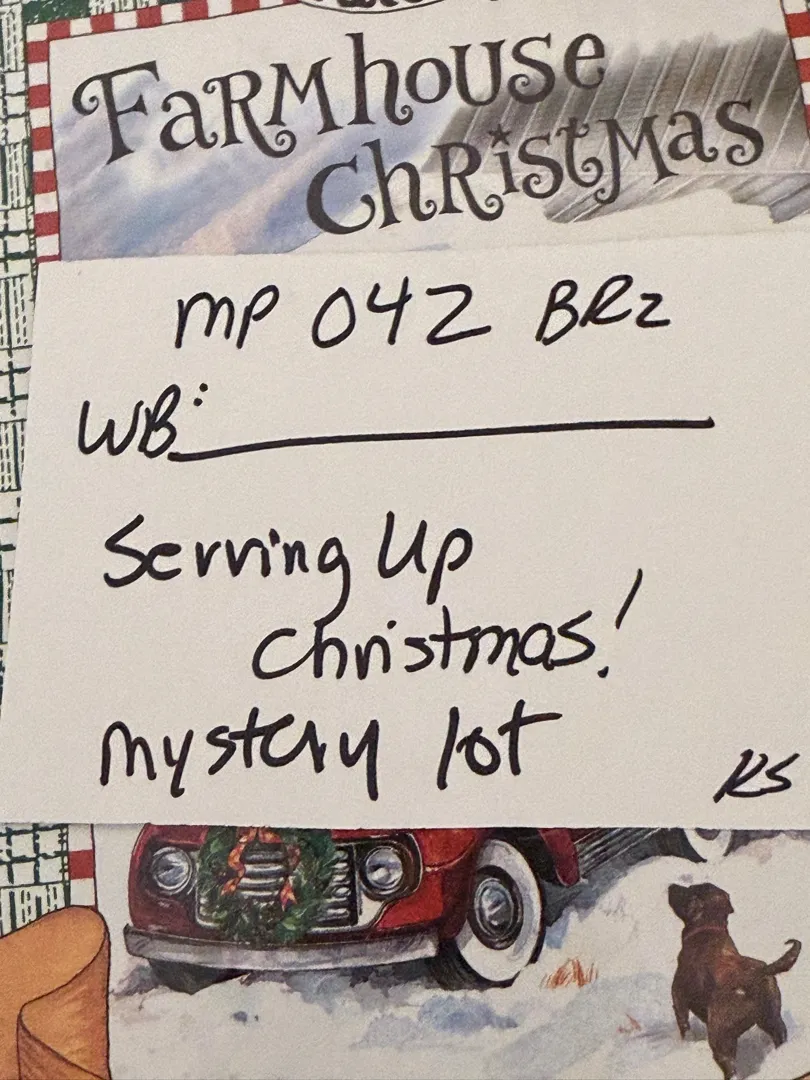 Farmhouse
Christmas
MP 042 BR2
WB:
Serving Up
Christmas!
Mystery lot
KS